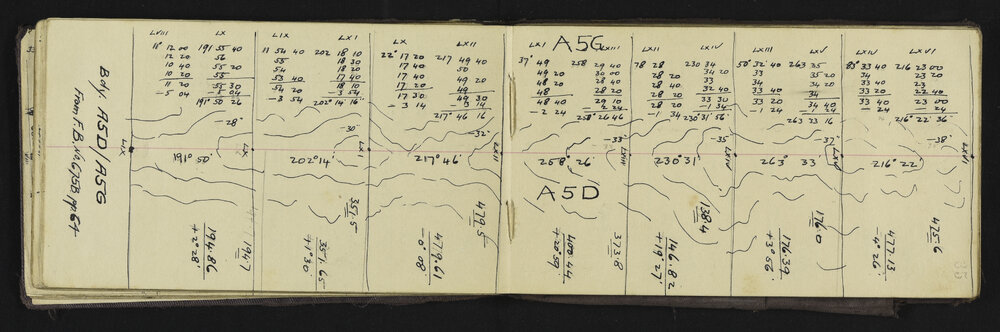 Bdy. A5D/A5G
From F.B. XAG/5B pp64
LVIII LX
11° 12 00 191 55 40
12 20 56
10 40 55 20
10 20 55
11 20 55 30
- 5 04 - 5 04
191° 50 26
-28'
LIX
191° 50'
194.7
194.86
+2° 28'
LIX LXI
11 54 40 202 18 10
55 18 30
54 18 20
53 20 17 40
54 20 18 10
- 3 54 - 3 54
202° 14' 16"
-30'
LXI
202° 14'
351.5
351.65
+1° 30
LX LXII
22° 17 20 217 49 40
17 40 50
17 40 49 20
17 20 49
17 30 49 30
- 3 14 3 14
217° 46 16
-32'
LXII
217° 46'
479.5
479.61
-0° 08'
A5G
LXI LXIII
37° 49 258 29 40
49 20 30 00
48 20 28 40
48 28 20
48 40 29 10
- 2 24 - 2 24
258° 26 46
-33'
LXIII
258° 26'
A5D
373.8
400.44
+20° 59'
LXII LXIV
78 28 230 34
28 20 34 20
28 20 33
28 20 32 40
28 20 33 30
- 1 34 - 1 34
230° 31' 56"
-35'
LXIV
230° 31'
138.4
146.82
+19° 27'
LXIII LXV
50° 32' 40 263 35
33 35 20
33 34 20
34 34
33 20 34 40
- 1 24 - 1 24
263 33 16
-37'
LXV
263° 33
176.0
176.39
+3° 56'
LXIV LXVI
83° 33 40 216 23 00
34 23 20
33 40 23
33 20 22 40
33 40 23 00
- 24 - 24
216° 22' 36
-38'
LXVI
216° 22'
475.6
477.13
-4° 26'